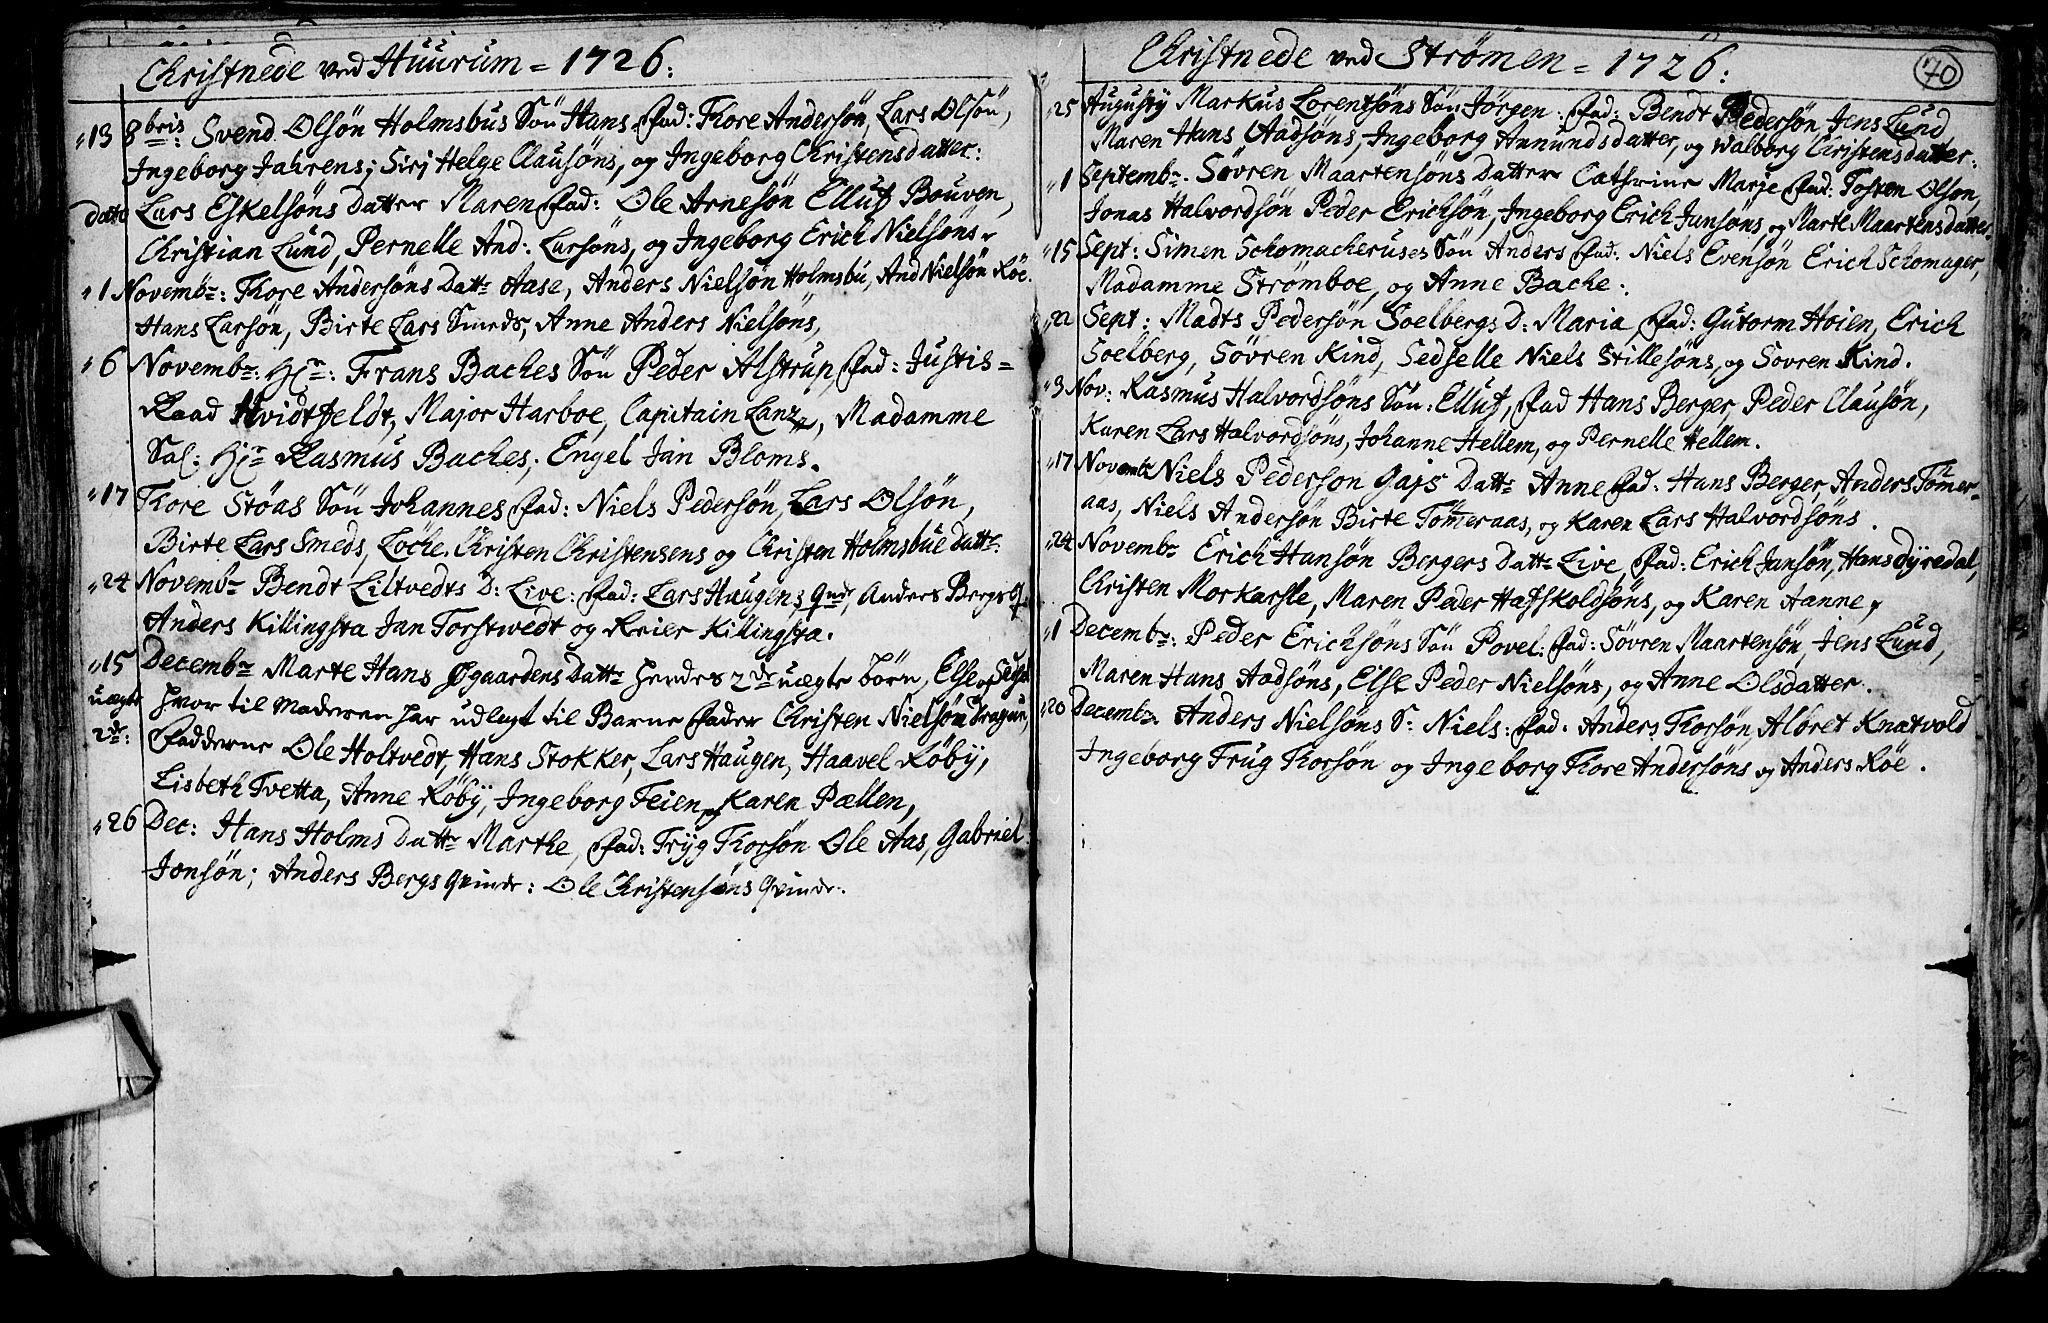 Christnede ved Huurum = 1726:
13 8bris: Svend Olsön Holmsbus Sön Hans Fad: Thore Andersön, Lars Olsön,
Ingeborg Jahrens; Sirj Helge Clausöns, og Ingeborg Christensdatter:
datto Lars Eskelsöns Datter Maren Fad: Ole Arnesön Elluf Bouven,
Christian Lund, Pernelle And: Larsöns, og Ingeborg Erich Nielsöns.
1 Novembr: Thore Andersöns Dattr Aase, Anders Nielsön Holmsbu, And Nielsön Röe.
Hans Larsön, Birte Lars Smeds, Anne Anders Nielsöns,
6 Novembr: Hr: Frans Baches Sön Peder Alstrup Fad: Justis=
Raad Hvidtfeldt, Major Harboe, Capitain Lanz, Madamme
Sal: Hr Rasmus Baches, Engel Jan Bloms.
17 Thore Stöas Sön Johannes Fad: Niels Pedersön, Lars Olsön,
Birte Lars Smeds, Löche Christen Christensens og Christen Holmsbue Dattr:
24 Novembr Bendt Liltvedts D: Live: Fad: Lars Haugens Qnd, Anders Bergs Q
Anders Killingsta Jan Torstwedt og Reier Killingsta.
15 Decembr Marte Hans Øgaardens Dattr hendes 2de uægte börn, Else og
uægte hvor til Moderen har udlegt til Barne Fader Christen Nielsön Dragun,
2de: Fadderne Ole Holtvedt, Hans Stokker, Lars Haugen, Haavel Röby,
Lisbeth Tvetta, Anne Röby, Ingeborg Teien og Karen Pællen,
26 Dec: Hans Holms Dattr Marthe, Fad: Tryg Thorsön Ole Aas, Gabriel
Jonsön; Anders Bergs Qvinde: Ole Christensöns Qvinde.
Christnede ved Strömen = 1726:
70
25 Augusty Markus Lorentsöns Sön Jörgen: Fad: Bendt Pedersön Jens Lund,
Maren Hans Aadsöns, Ingeborg Anundsdatter, og Walborg Christensdatter:
1 Septembr. Sövren Maartensöns Datter Cathrine Marje Fad: Tosten Olson,
Jonas Halvordsön Peder Ericksön, Ingeborg Erich Jansöns og Marte Maartensdatter.
15 Sept: Simen Schomacheruses Sön Anders Fad: Niels Evensön Erich Schomager,
Madamme Strömboe, og Anne Bache:
22 Sept: Madts Pedersön Soelbergs D: Maria Fad: Gutorm Høien, Erich
Soelberg, Sövren Kind, Sedselle Niels Stillesöns, og Sovren Kind.
3 Nov: Rasmus Halvordsöns Sön: Elluf, Fad Hans Berger, Peder Clausön,
Karen Lars Halvordsöns, Johanne Hellem, og Pernelle Hellem.
17 Novembr Niels Pederson Gajs Dattr Anne Fad: Hans Berger, Anders Tömer-
aas, Niels Andersön Birte Tömeraas, og Karen Lars Halvordsöns.
24 Novembr Erich Hansön Bergers Dattr Live, Fad: Erich Jansön, Hans Dyredal,
Christen Morkarsle, Maren Peder Hafskoldsöns, og Karen Aanne,
1 Decembr: Peder Ericksöns Sön Povel: Fad: Sövren Maartensön, Jens Lund,
Maren Hans Aadsöns, Else Peder Nielsöns, og Anne Olsdatter.
20 Decembr Anders Nielsöns S: Niels: Fad. Anders Thorsön, Albret Knatvold
Ingeborg Trug Thorsön og Ingeborg Thore Andersöns og Anders Röe.